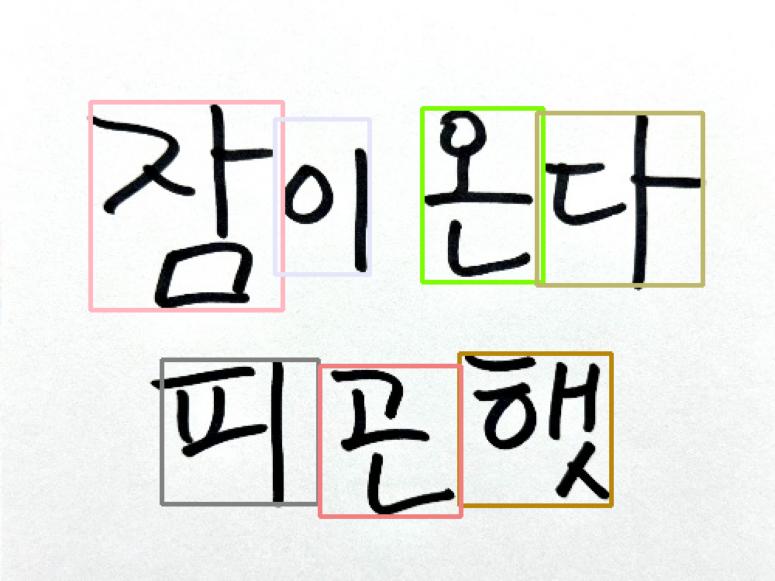 잠이 온다
피곤햇